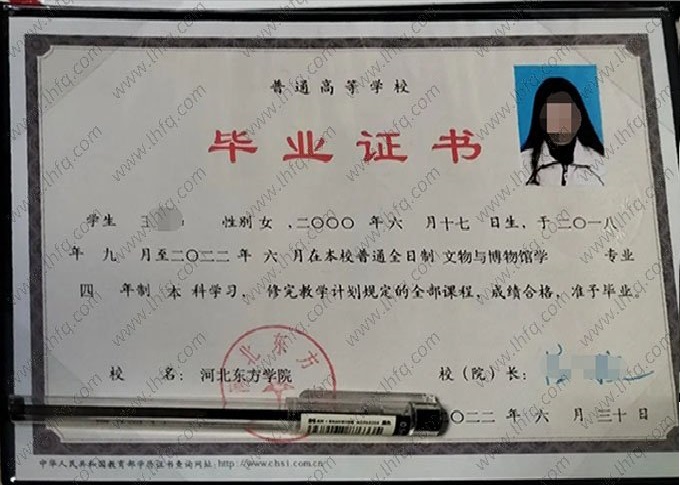 普通高等学校
毕业证书
学生 王 性别 女 ,二〇〇〇 年 六 月 十七 日生,于二〇一八
年 九 月至二〇二二 年 六 月在本校普通全日制 文物与博物馆学 专业
四 年制 本 科学习, 修完教学计划规定的全部课程,成绩合格,准予毕业。
北东方
校 名: 河北东方学院 校(院)长:
〇二二 年 六 月三十日
中华人民共和国教育部学历证书查询网址: http://www.chsi.com.cn
www.lhfq.com